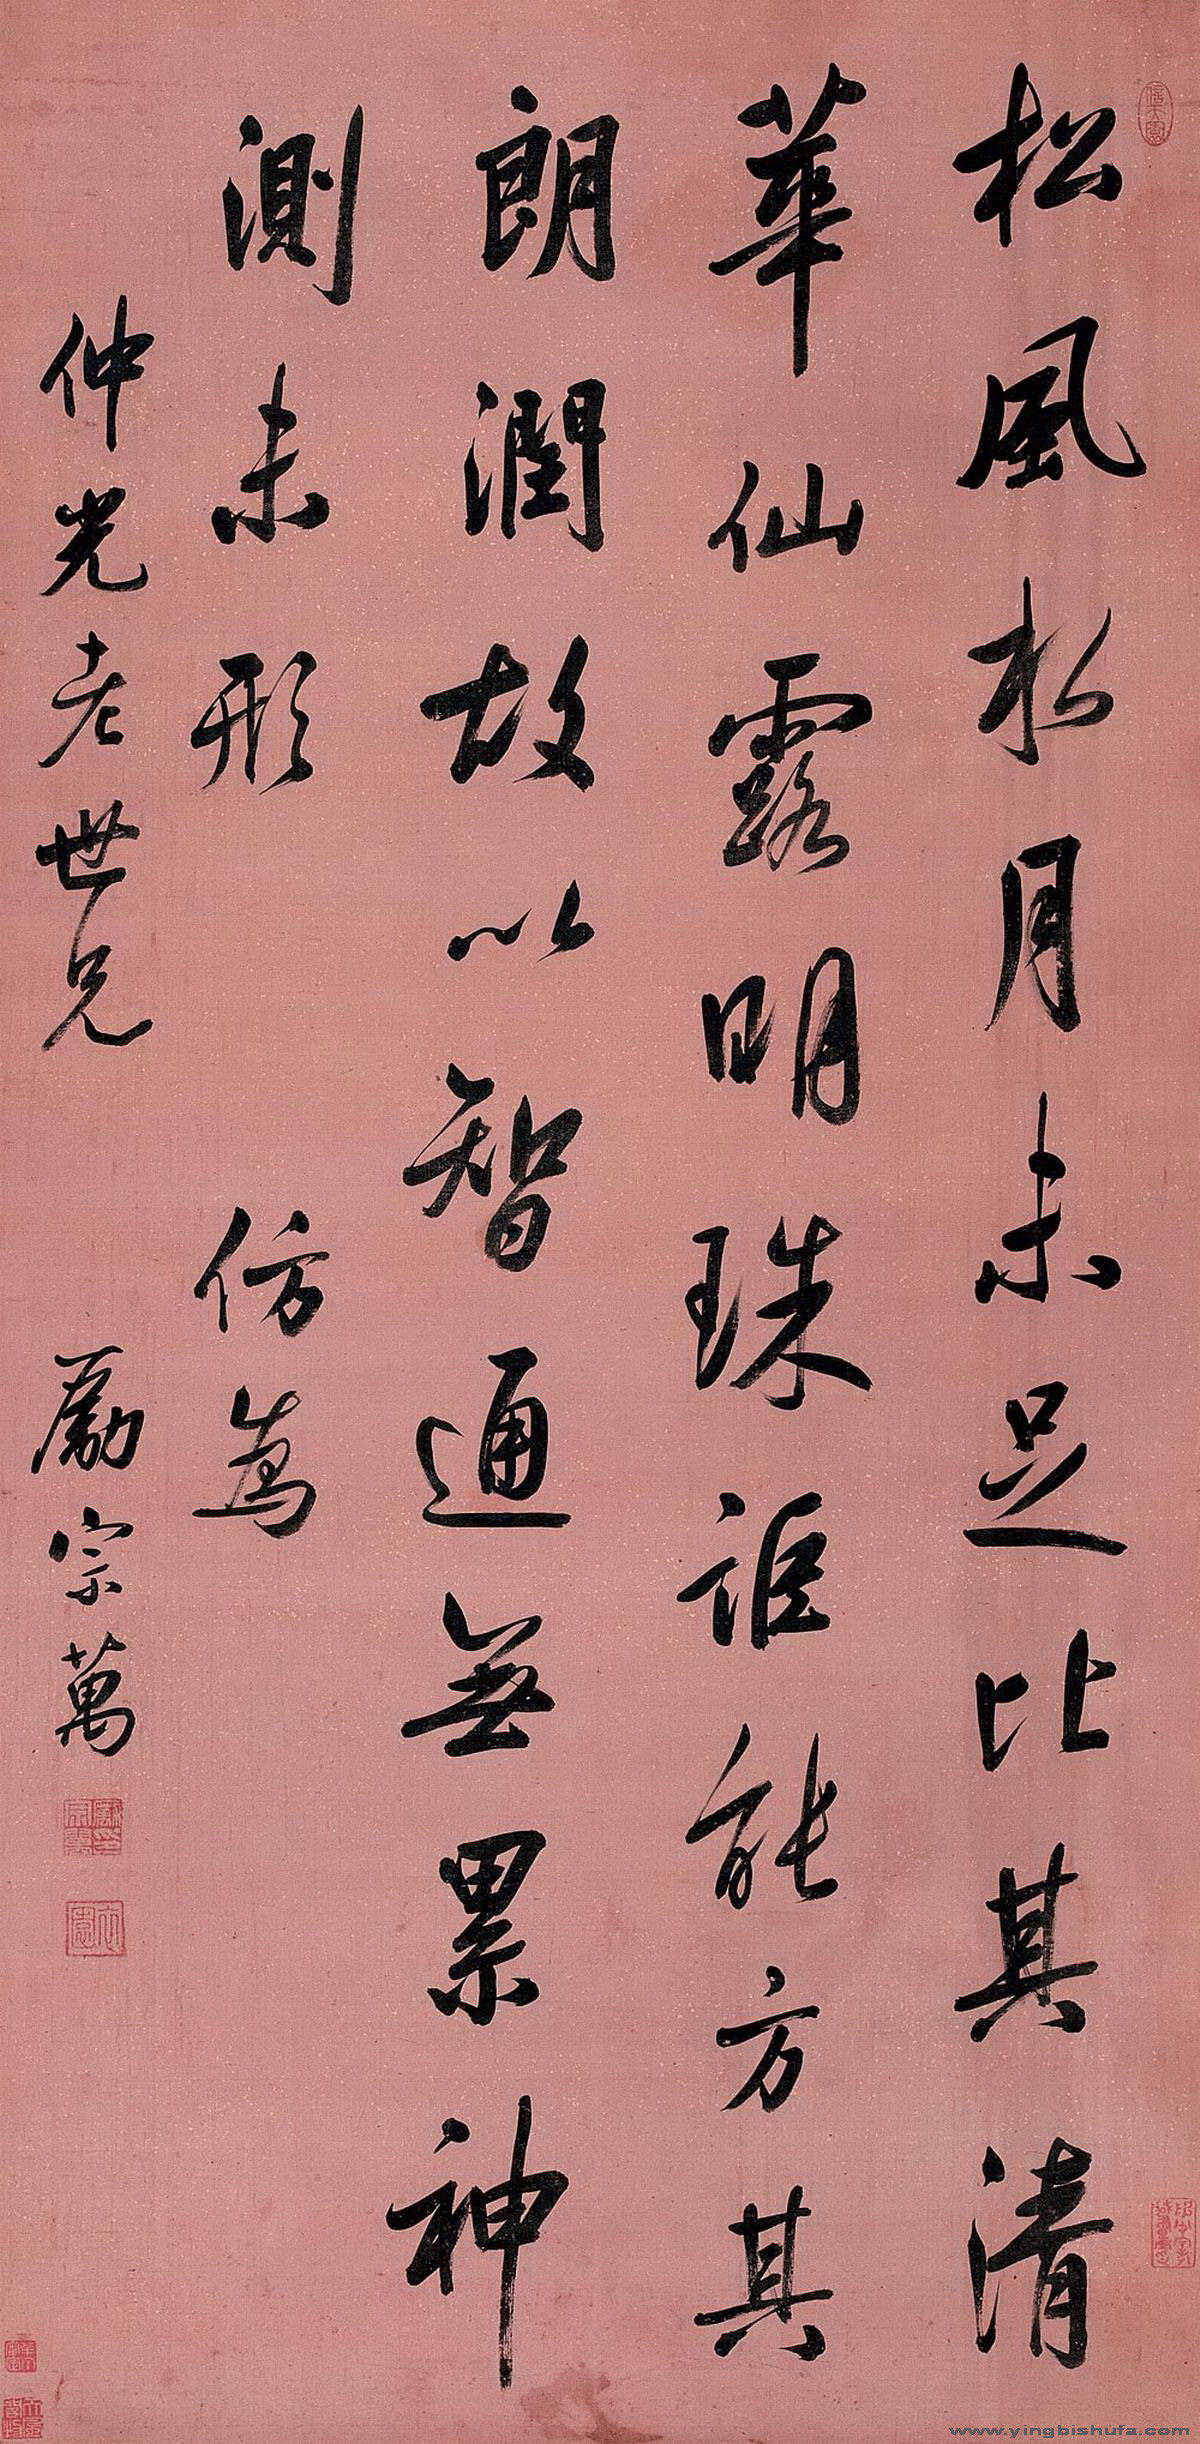 松風水月未足比其清
華仙露明珠詎能方其
朗潤故以智通無累神
測未形 仿爲
仲光老世兄 勵宗萬
www.yingbishufa.com